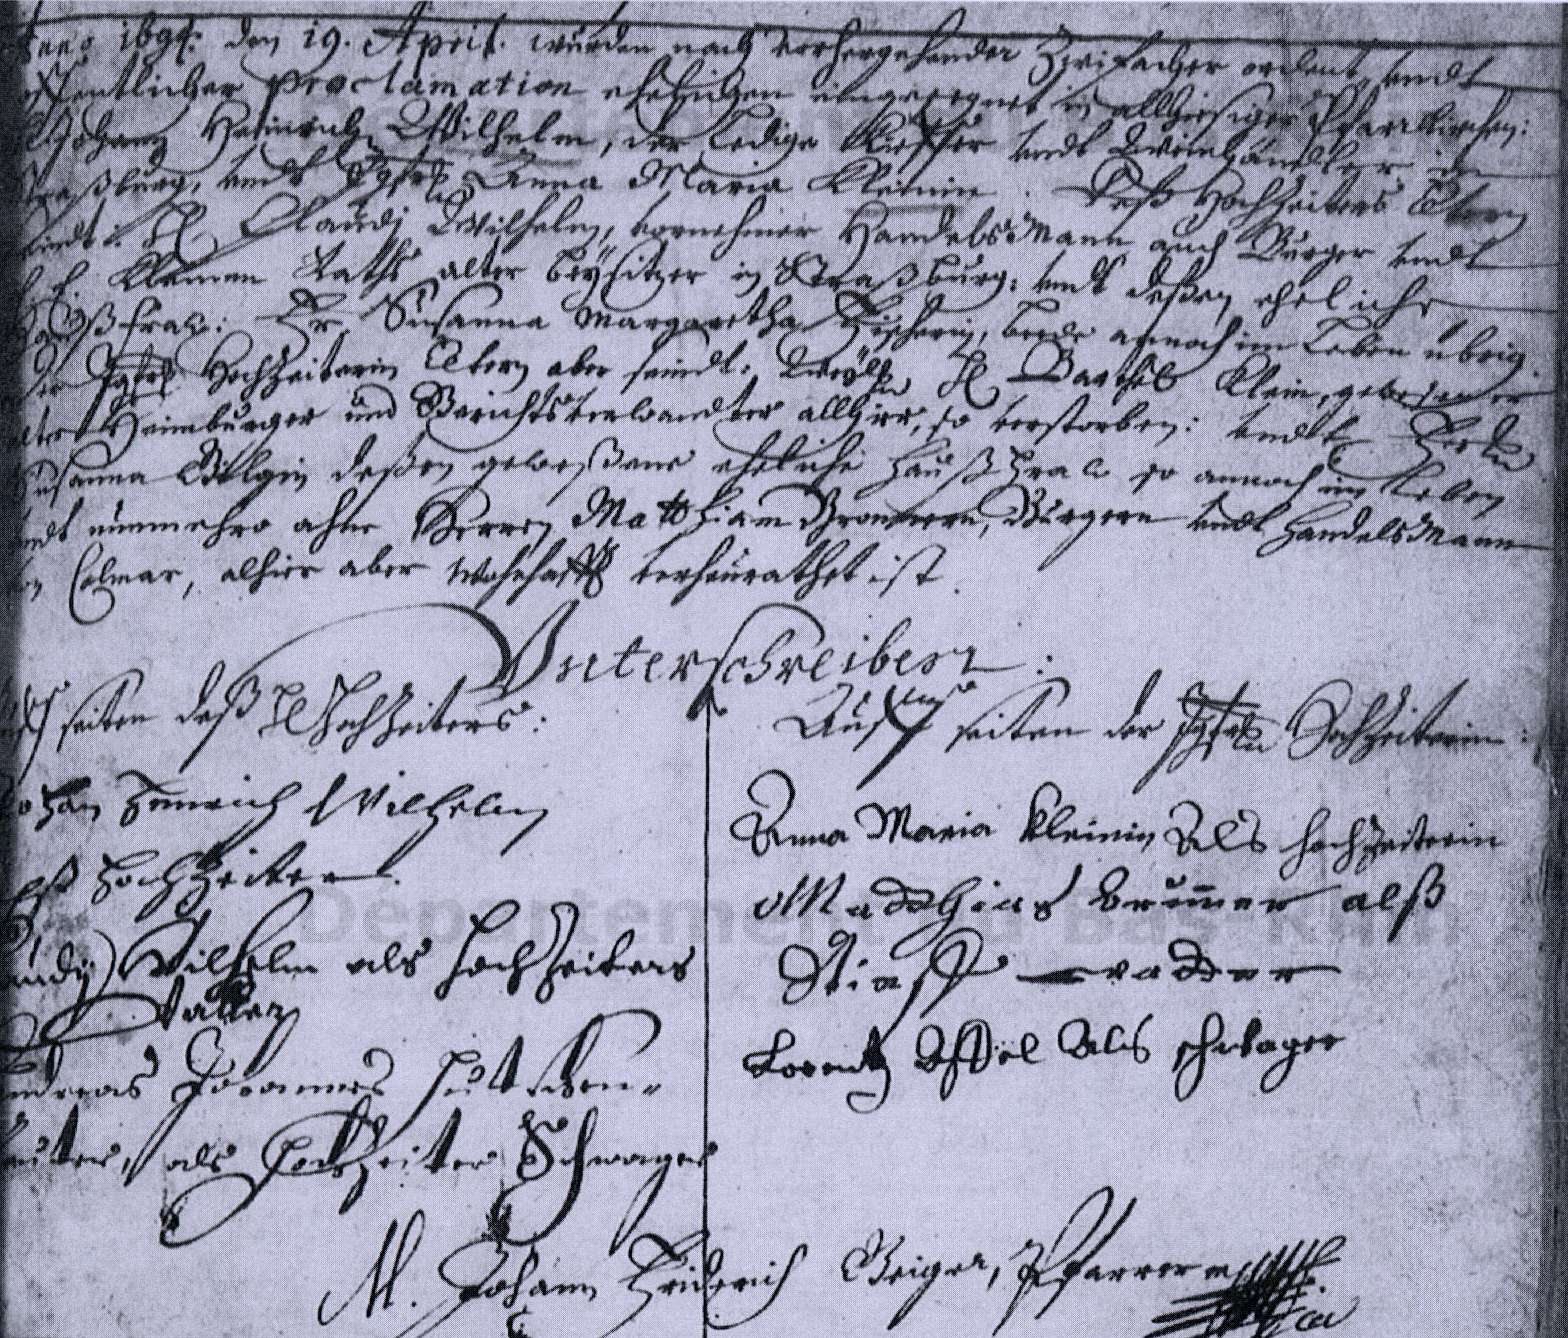 den 19. April. wurden nach vorhergehender Zweifacher ordent. undt
offentlicher proclamation ehelichen eingesegnet in allhiesiger Pfarrkirchen:
Johann Heinrich Wilhelm, der Ledige Kieffer undt Weinhändler in
Straßburg, undt Jgfr. Anna Maria Kleinin. Deß Hochzeiters Eltern
sindt: H. Claudj Wilhelm, vornehmer HandelsMann auch Burger undt
Kleinen Raths alter Beysitzer in Straßburg: undt deßen eheliche
Haußfraw: Fr. Susanna Margaretha, beede annoch im Leben übrig.
der Jgfr. Hochzeiterin Eltern aber seindt: Weyl. H. Barthel Klein, gewesener
alter Heimburger und Gerichtsverwandter allhier, so verstorben: undt
Susanna deßen geweßene eheliche Haußfraw so annoch im Leben
undt nunmehro ahn Herren Matthiam Bronnern, Burgern undt HandelsMann
in Colmar, alhier aber wohnhafft verheurathet ist.
Unterschreiben:
seiten deß H. Hochzeiters:
Johan Heinrich Wilhelm
alß Hochzeiter.
Claudy Wilhelm als Hochzeiters
Vatter
Andreas Johannes
als Hochzeiter Schwager
Auff seiten der Jgfr. Hochzeiterin:
Anna Maria Kleinin Als Hochzeiterin
Maddhias Brunner alß
Stieff vadder
Lorentz Als schwager
M. Johann Friderich Geiger, Pfarrer